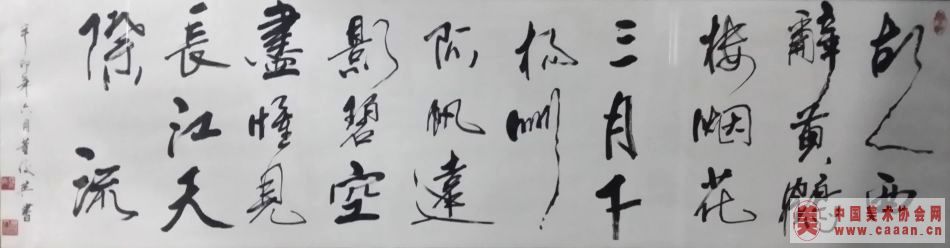 故人西
辭黄鶴
楼烟花
三月下
揚州
孤帆遠
影碧空
盡惟見
長江天
際流
辛卯年六月 書
中国美术协会网
www.caaan.cn